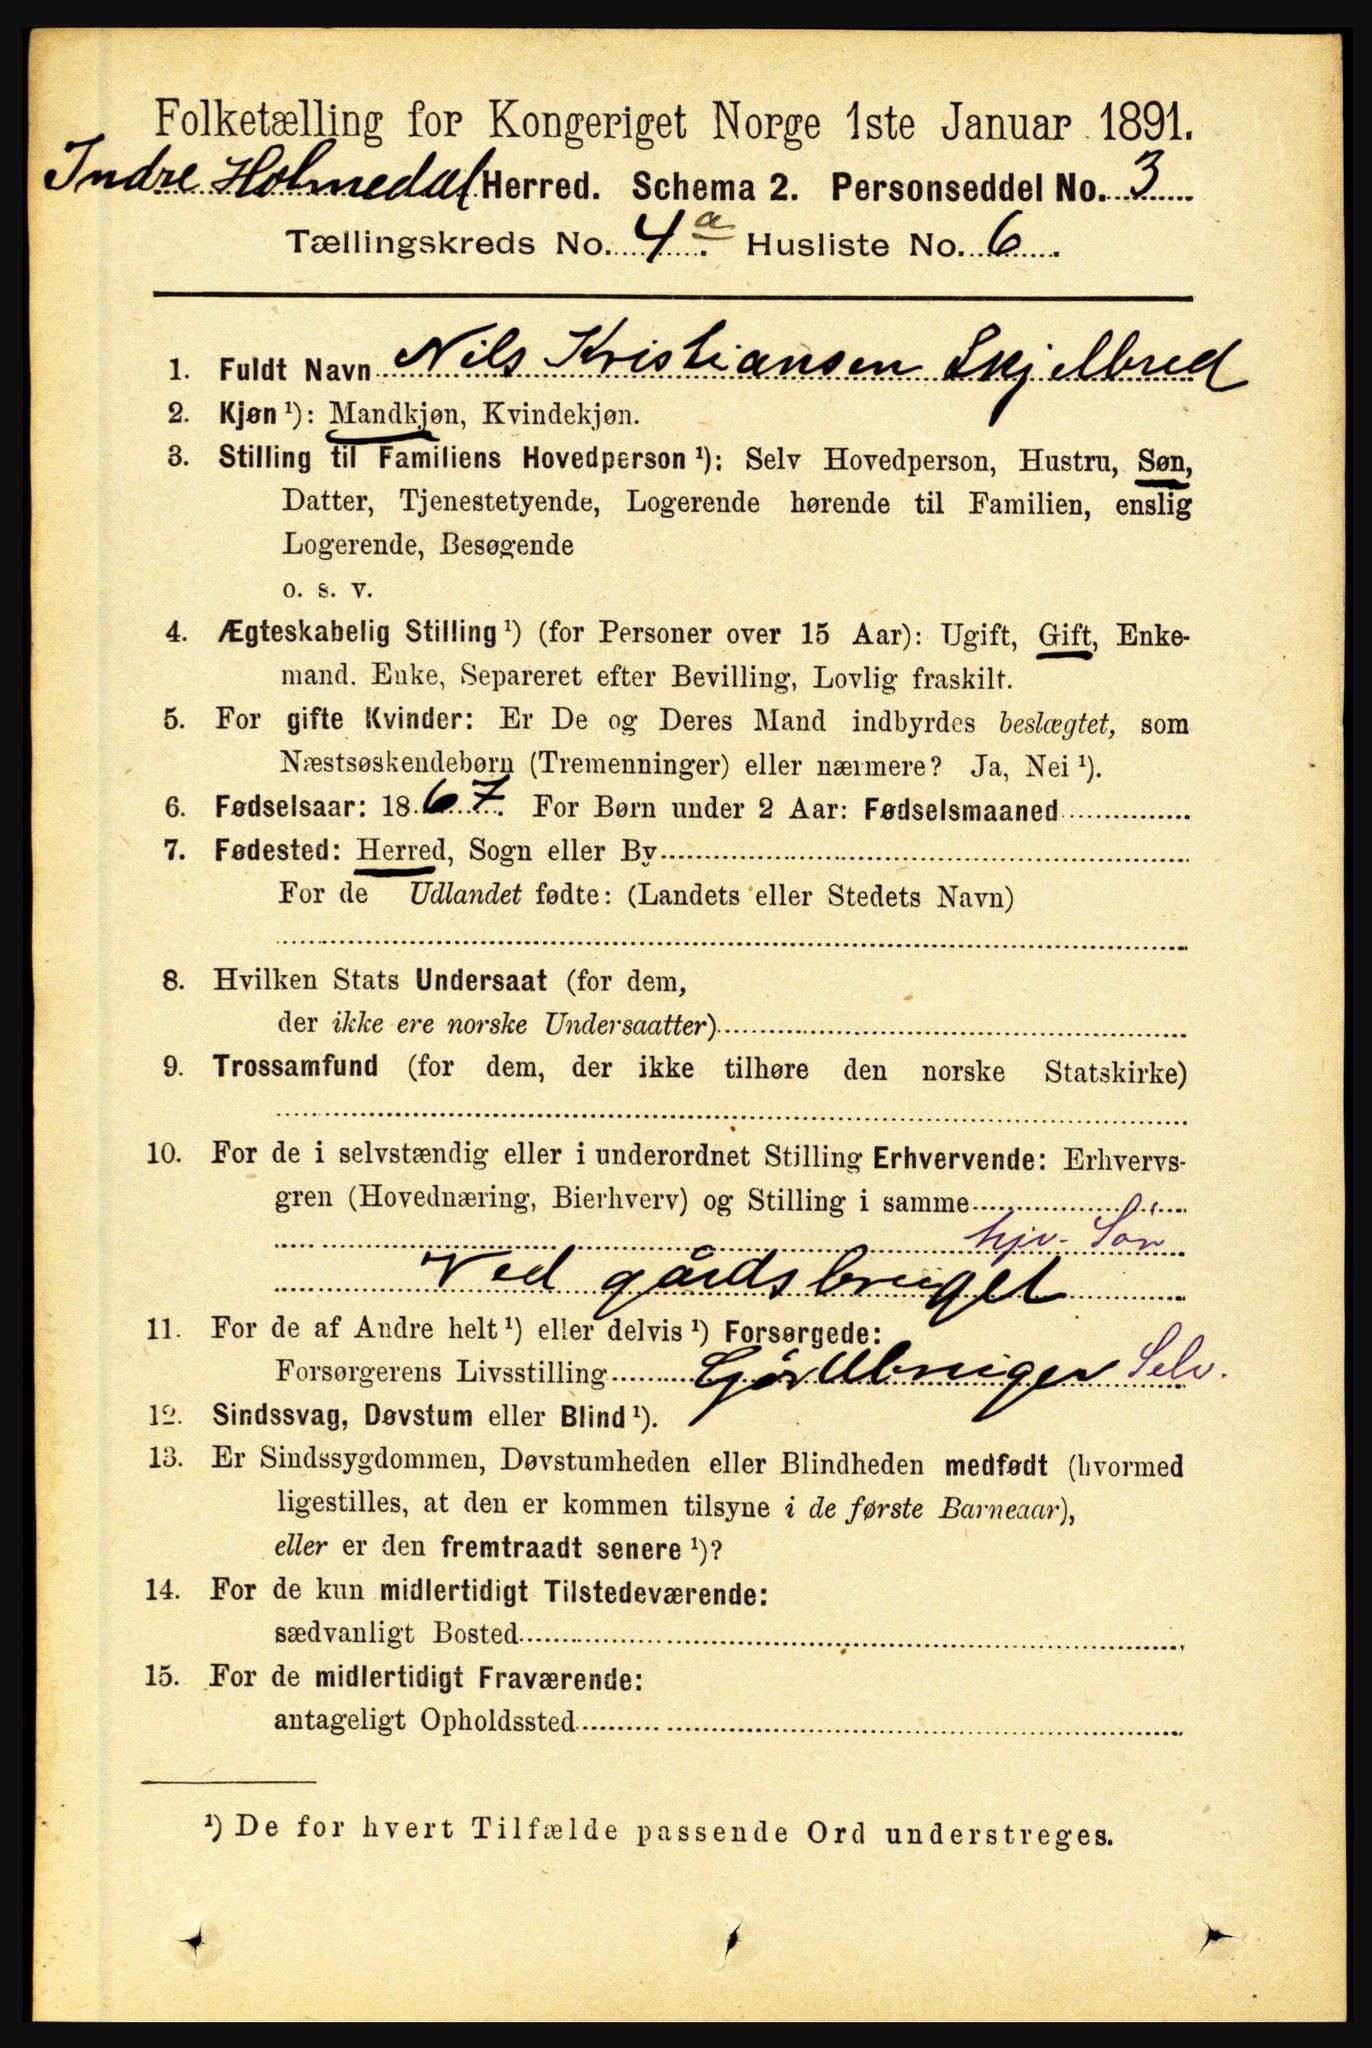 Folketælling for Kongeriget Norge 1ste Januar 1891.
Indre Holmedal Herred. Schema 2. Personseddel No. 3
Tællingskreds No. 4 a. Husliste No. 6.
1. Fuldt Navn Nils Kristiansen Skjelbred
2. Kjøn ¹): Mandkjøn, Kvindekjøn.
3. Stilling til Familiens Hovedperson ¹): Selv Hovedperson, Hustru, Søn,
Datter, Tjenestetyende, Logerende hørende til Familien, enslig
Logerende, Besøgende
o. s. v.
4. Ægteskabelig Stilling ¹) (for Personer over 15 Aar): Ugift, Gift, Enke-
mand. Enke, Separeret efter Bevilling, Lovlig fraskilt.
5. For gifte Kvinder: Er De og Deres Mand indbyrdes beslægtet, som
Næstsøskendebørn (Tremenninger) eller nærmere? Ja, Nei ¹).
6. Fødselsaar: 1867. For Børn under 2 Aar: Fødselsmaaned
7. Fødested: Herred, Sogn eller By
For de Udlandet fødte: (Landets eller Stedets Navn)
8. Hvilken Stats Undersaat (for dem,
der ikke ere norske Undersaatter)
9. Trossamfund (for dem, der ikke tilhøre den norske Statskirke)
10. For de i selvstændig eller i underordnet Stilling Erhvervende: Erhvervs-
gren (Hovednæring, Bierhverv) og Stilling i samme
hjv. Sön
Ved gårdsbruget
11. For de af Andre helt ¹) eller delvis ¹) Forsørgede:
Forsørgerens Livsstilling Selv.
12. Sindssvag, Døvstum eller Blind ¹).
13. Er Sindssygdommen, Døvstumheden eller Blindheden medfødt (hvormed
ligestilles, at den er kommen tilsyne i de første Barneaar),
eller er den fremtraadt senere ¹)?
14. For de kun midlertidigt Tilstedeværende:
sædvanligt Bosted
15. For de midlertidigt Fraværende:
antageligt Opholdssted
¹) De for hvert Tilfælde passende Ord understreges.